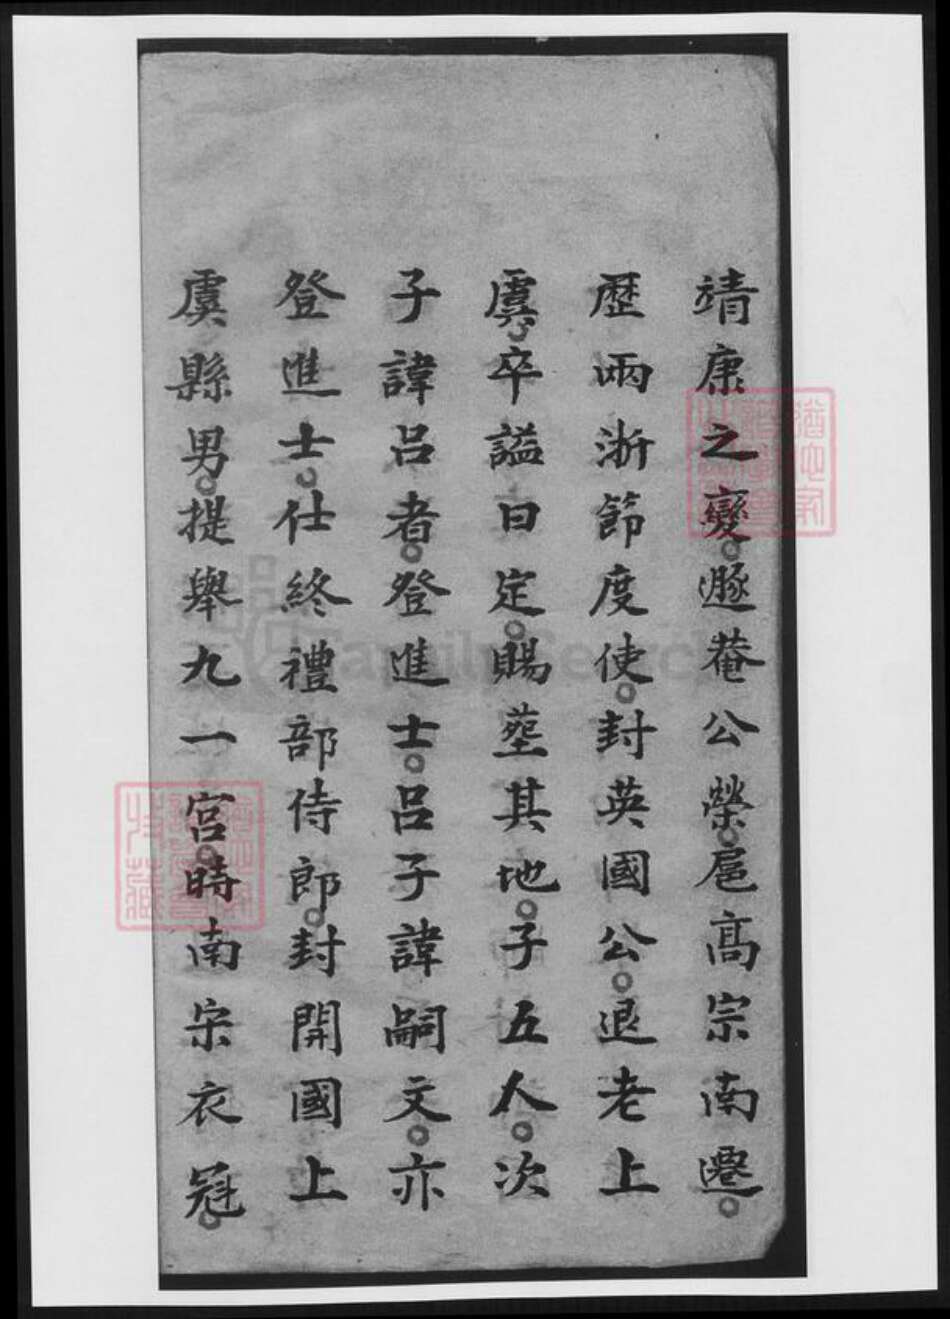 靖康之變。遯菴公榮。扈高宗南遷。
歷兩浙節度使。封英國公。退老上
虞。卒謚曰定。賜塟其地。子五人。次
子諱呂者。登進士。呂子諱嗣文。亦
登進士。仕終禮部侍郎。封開國上
虞縣男。提舉九一宮。時南宋衣冠。
FamilySearch